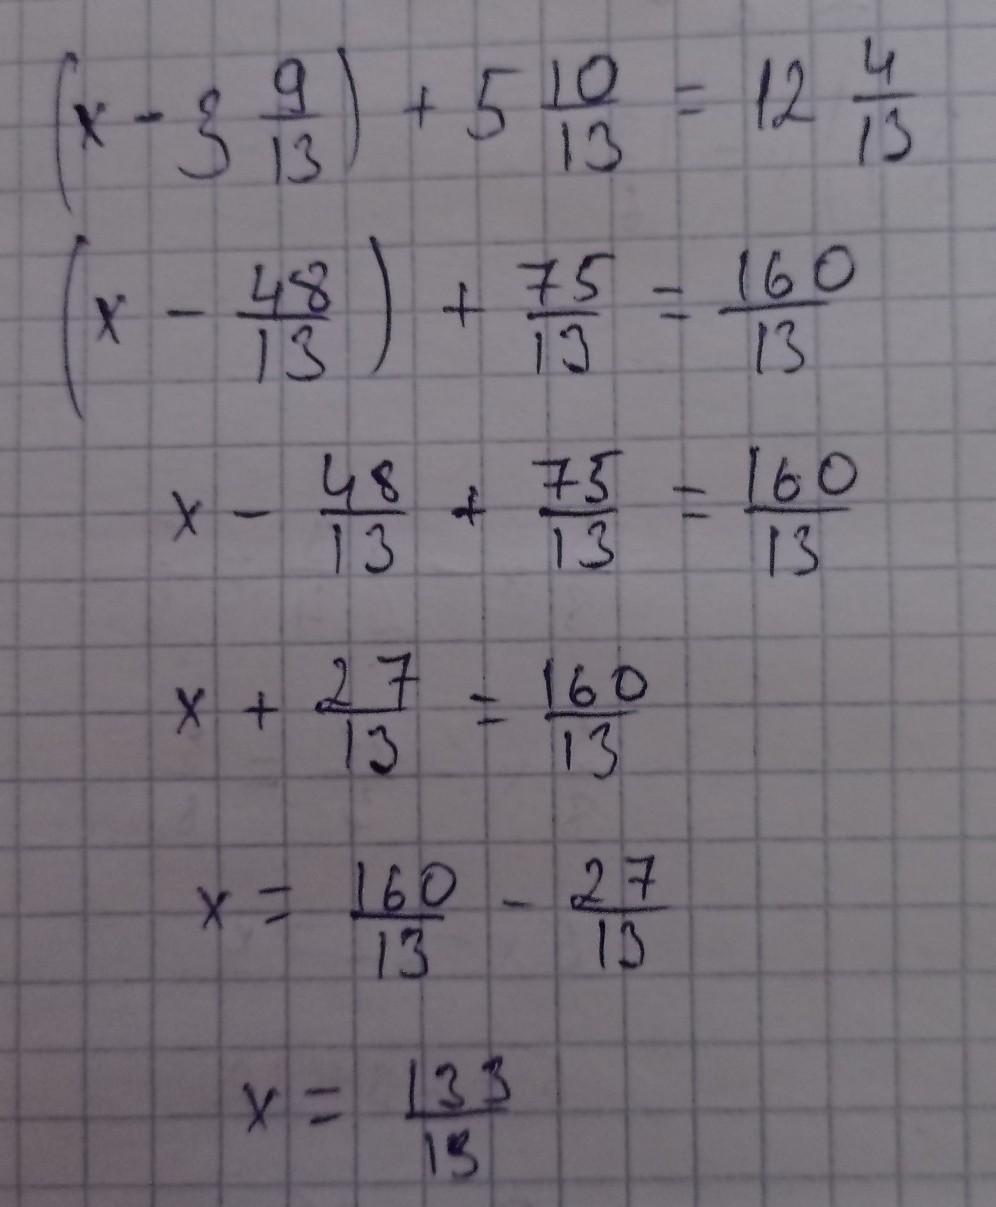 (x - 3 9/13) + 5 10/13 = 12 4/13
(x - 48/13) + 75/13 = 160/13
x - 48/13 + 75/13 = 160/13
x + 27/13 = 160/13
x = 160/13 - 27/13
x = 133/13